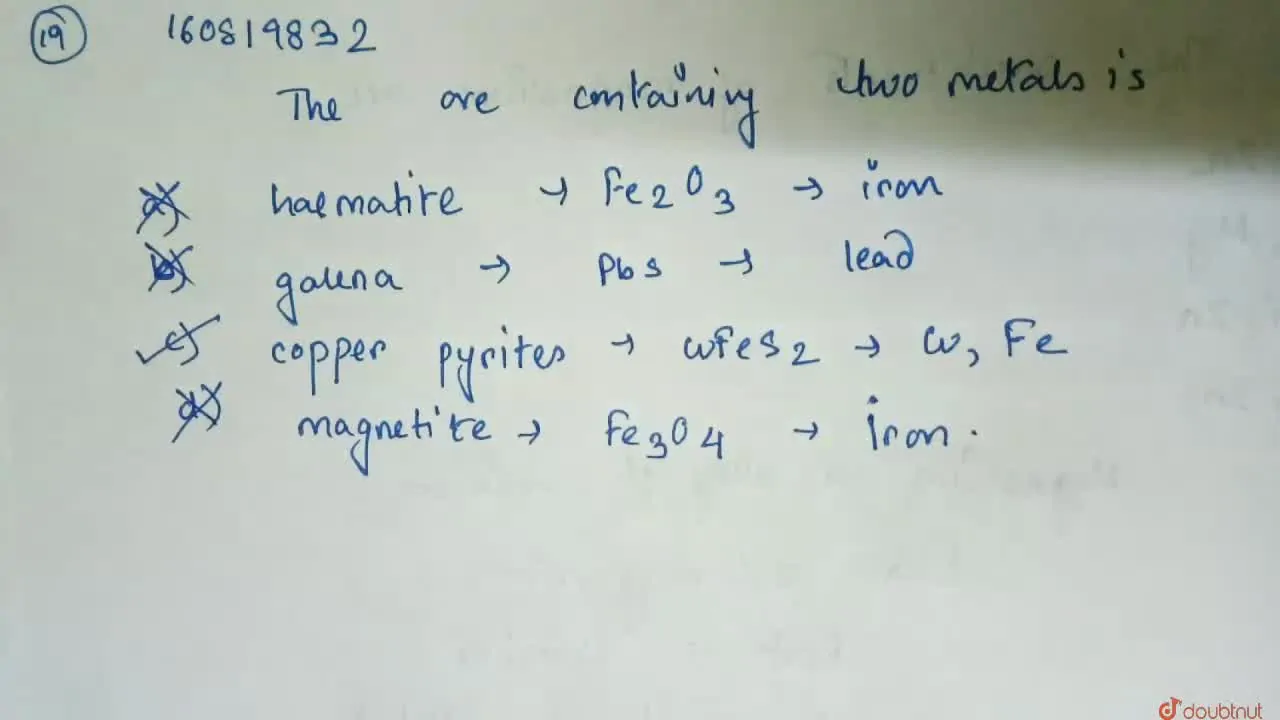 19 160819832
The ore containing two metals is
a) haematite → Fe2O3 → iron
b) galena → PbS → lead
c) copper pyrites → CuFeS2 → Cu, Fe
d) magnetite → Fe3O4 → iron.
doubtnut